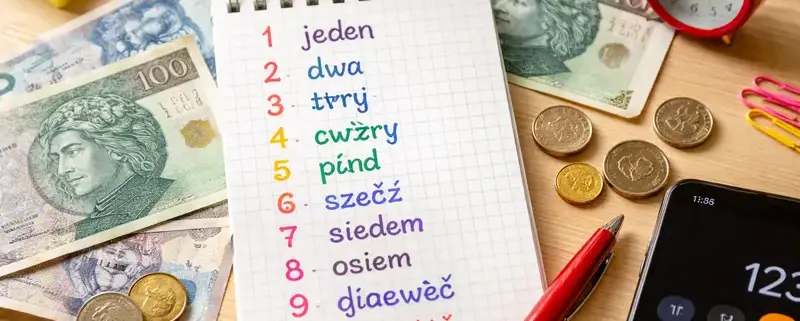 1 jeden
2 dwa
3 ttryj
4 cwẑry
5 pínd
6 szečź
7 siedem
8 osiem
9 djaewèč
100
11:56
123